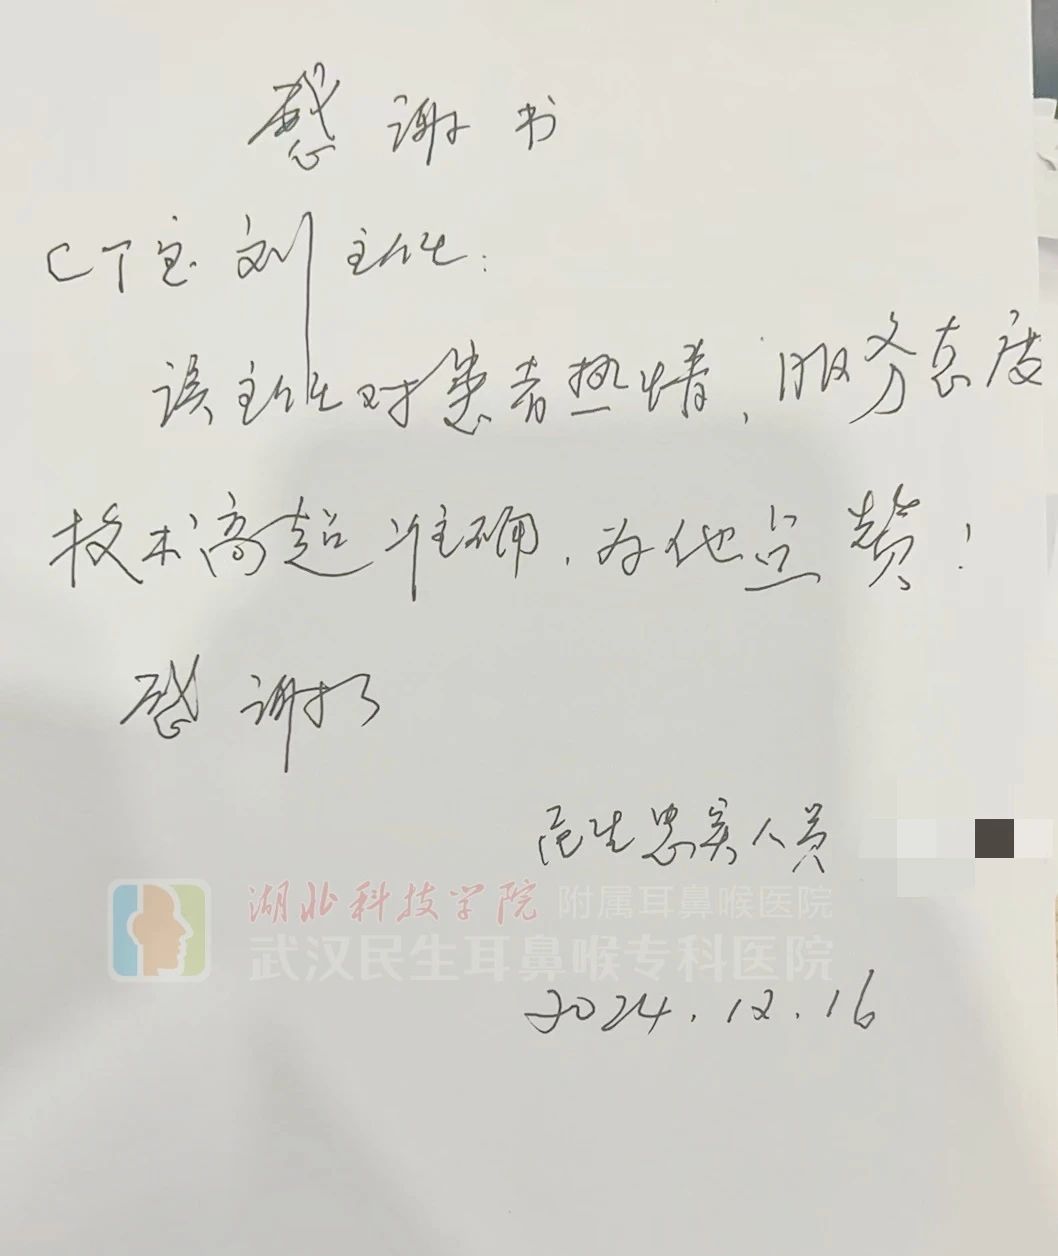 感谢书
CT室 刘主任:
该主任对患者热情,服务态度
技术高超准确,为他点赞!
感谢了
民生忠实人员
湖北科技学院 附属耳鼻喉医院
武汉民生耳鼻喉专科医院
2024.12.16